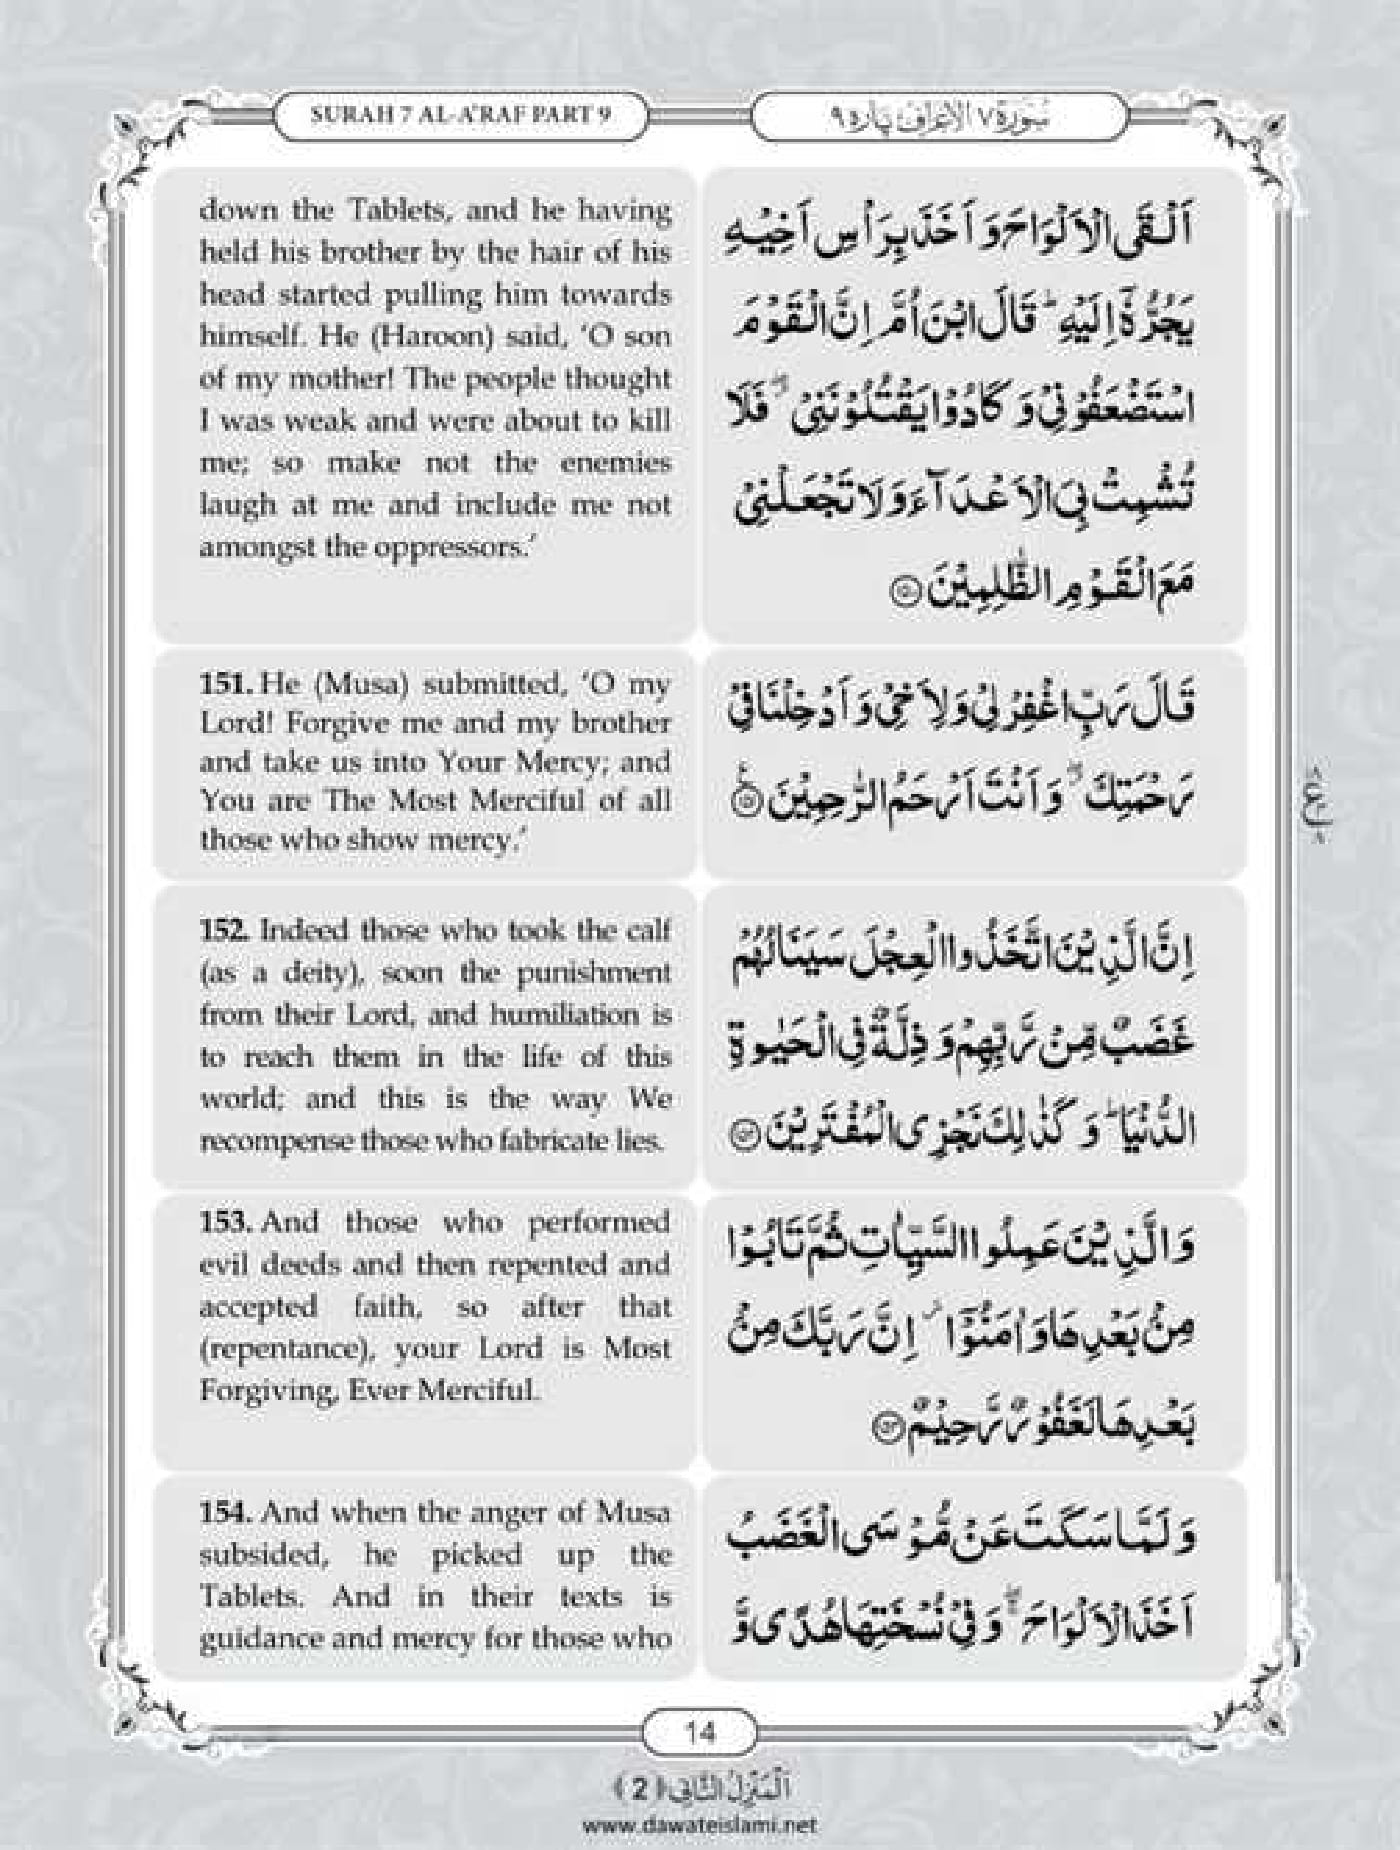 SURAH 7 AL-A'RAF PART 9
سُوْرَةُ ٧ الْاَعْرَاف پارہ ٩
down the Tablets, and he having
held his brother by the hair of his
head started pulling him towards
himself. He (Haroon) said, ‘O son
of my mother! The people thought
I was weak and were about to kill
me; so make not the enemies
laugh at me and include me not
amongst the oppressors.’
اَلْقَى الْاَلْوَاحَ وَ اَخَذَ بِرَاْسِ اَخِیْهِ
یَجُرُّهٗۤ اِلَیْهِ ؕ قَالَ ابْنَ اُمَّ اِنَّ الْقَوْمَ
اسْتَضْعَفُوْنِیْ وَ كَادُوْا یَقْتُلُوْنَنِیْ ۖ٘ فَلَا
تُشْمِتْ بِیَ الْاَعْدَآءَ وَ لَا تَجْعَلْنِیْ
مَعَ الْقَوْمِ الظّٰلِمِیْنَ ﴿۱۵۰﴾
151. He (Musa) submitted, ‘O my
Lord! Forgive me and my brother
and take us into Your Mercy; and
You are The Most Merciful of all
those who show mercy.’
قَالَ رَبِّ اغْفِرْ لِیْ وَ لِاَخِیْ وَ اَدْخِلْنَا فِیْ
رَحْمَتِكَ ۖ٘ وَ اَنْتَ اَرْحَمُ الرّٰحِمِیْنَ ﴿۱۵۱﴾
152. Indeed those who took the calf
(as a deity), soon the punishment
from their Lord, and humiliation is
to reach them in the life of this
world; and this is the way We
recompense those who fabricate lies.
اِنَّ الَّذِیْنَ اتَّخَذُوا الْعِجْلَ سَیَنَالُهُمْ
غَضَبٌ مِّنْ رَّبِّهِمْ وَ ذِلَّةٌ فِی الْحَیٰوةِ
الدُّنْیَا ؕ وَ كَذٰلِكَ نَجْزِی الْمُفْتَرِیْنَ ﴿۱۵۲﴾
153. And those who performed
evil deeds and then repented and
accepted faith, so after that
(repentance), your Lord is Most
Forgiving, Ever Merciful.
وَ الَّذِیْنَ عَمِلُوا السَّیِّاٰتِ ثُمَّ تَابُوْا
مِنْۢ بَعْدِهَا وَ اٰمَنُوْۤا ؗ اِنَّ رَبَّكَ مِنْۢ
بَعْدِهَا لَغَفُوْرٌ رَّحِیْمٌ ﴿۱۵۳﴾
154. And when the anger of Musa
subsided, he picked up the
Tablets. And in their texts is
guidance and mercy for those who
وَ لَمَّا سَكَتَ عَنْ مُّوْسَى الْغَضَبُ
اَخَذَ الْاَلْوَاحَ ۖۚ وَ فِیْ نُسْخَتِهَا هُدًی وَّ
14
اَلْمَنْزِلُ الثَّانِی ﴿2﴾
www.dawateislami.net